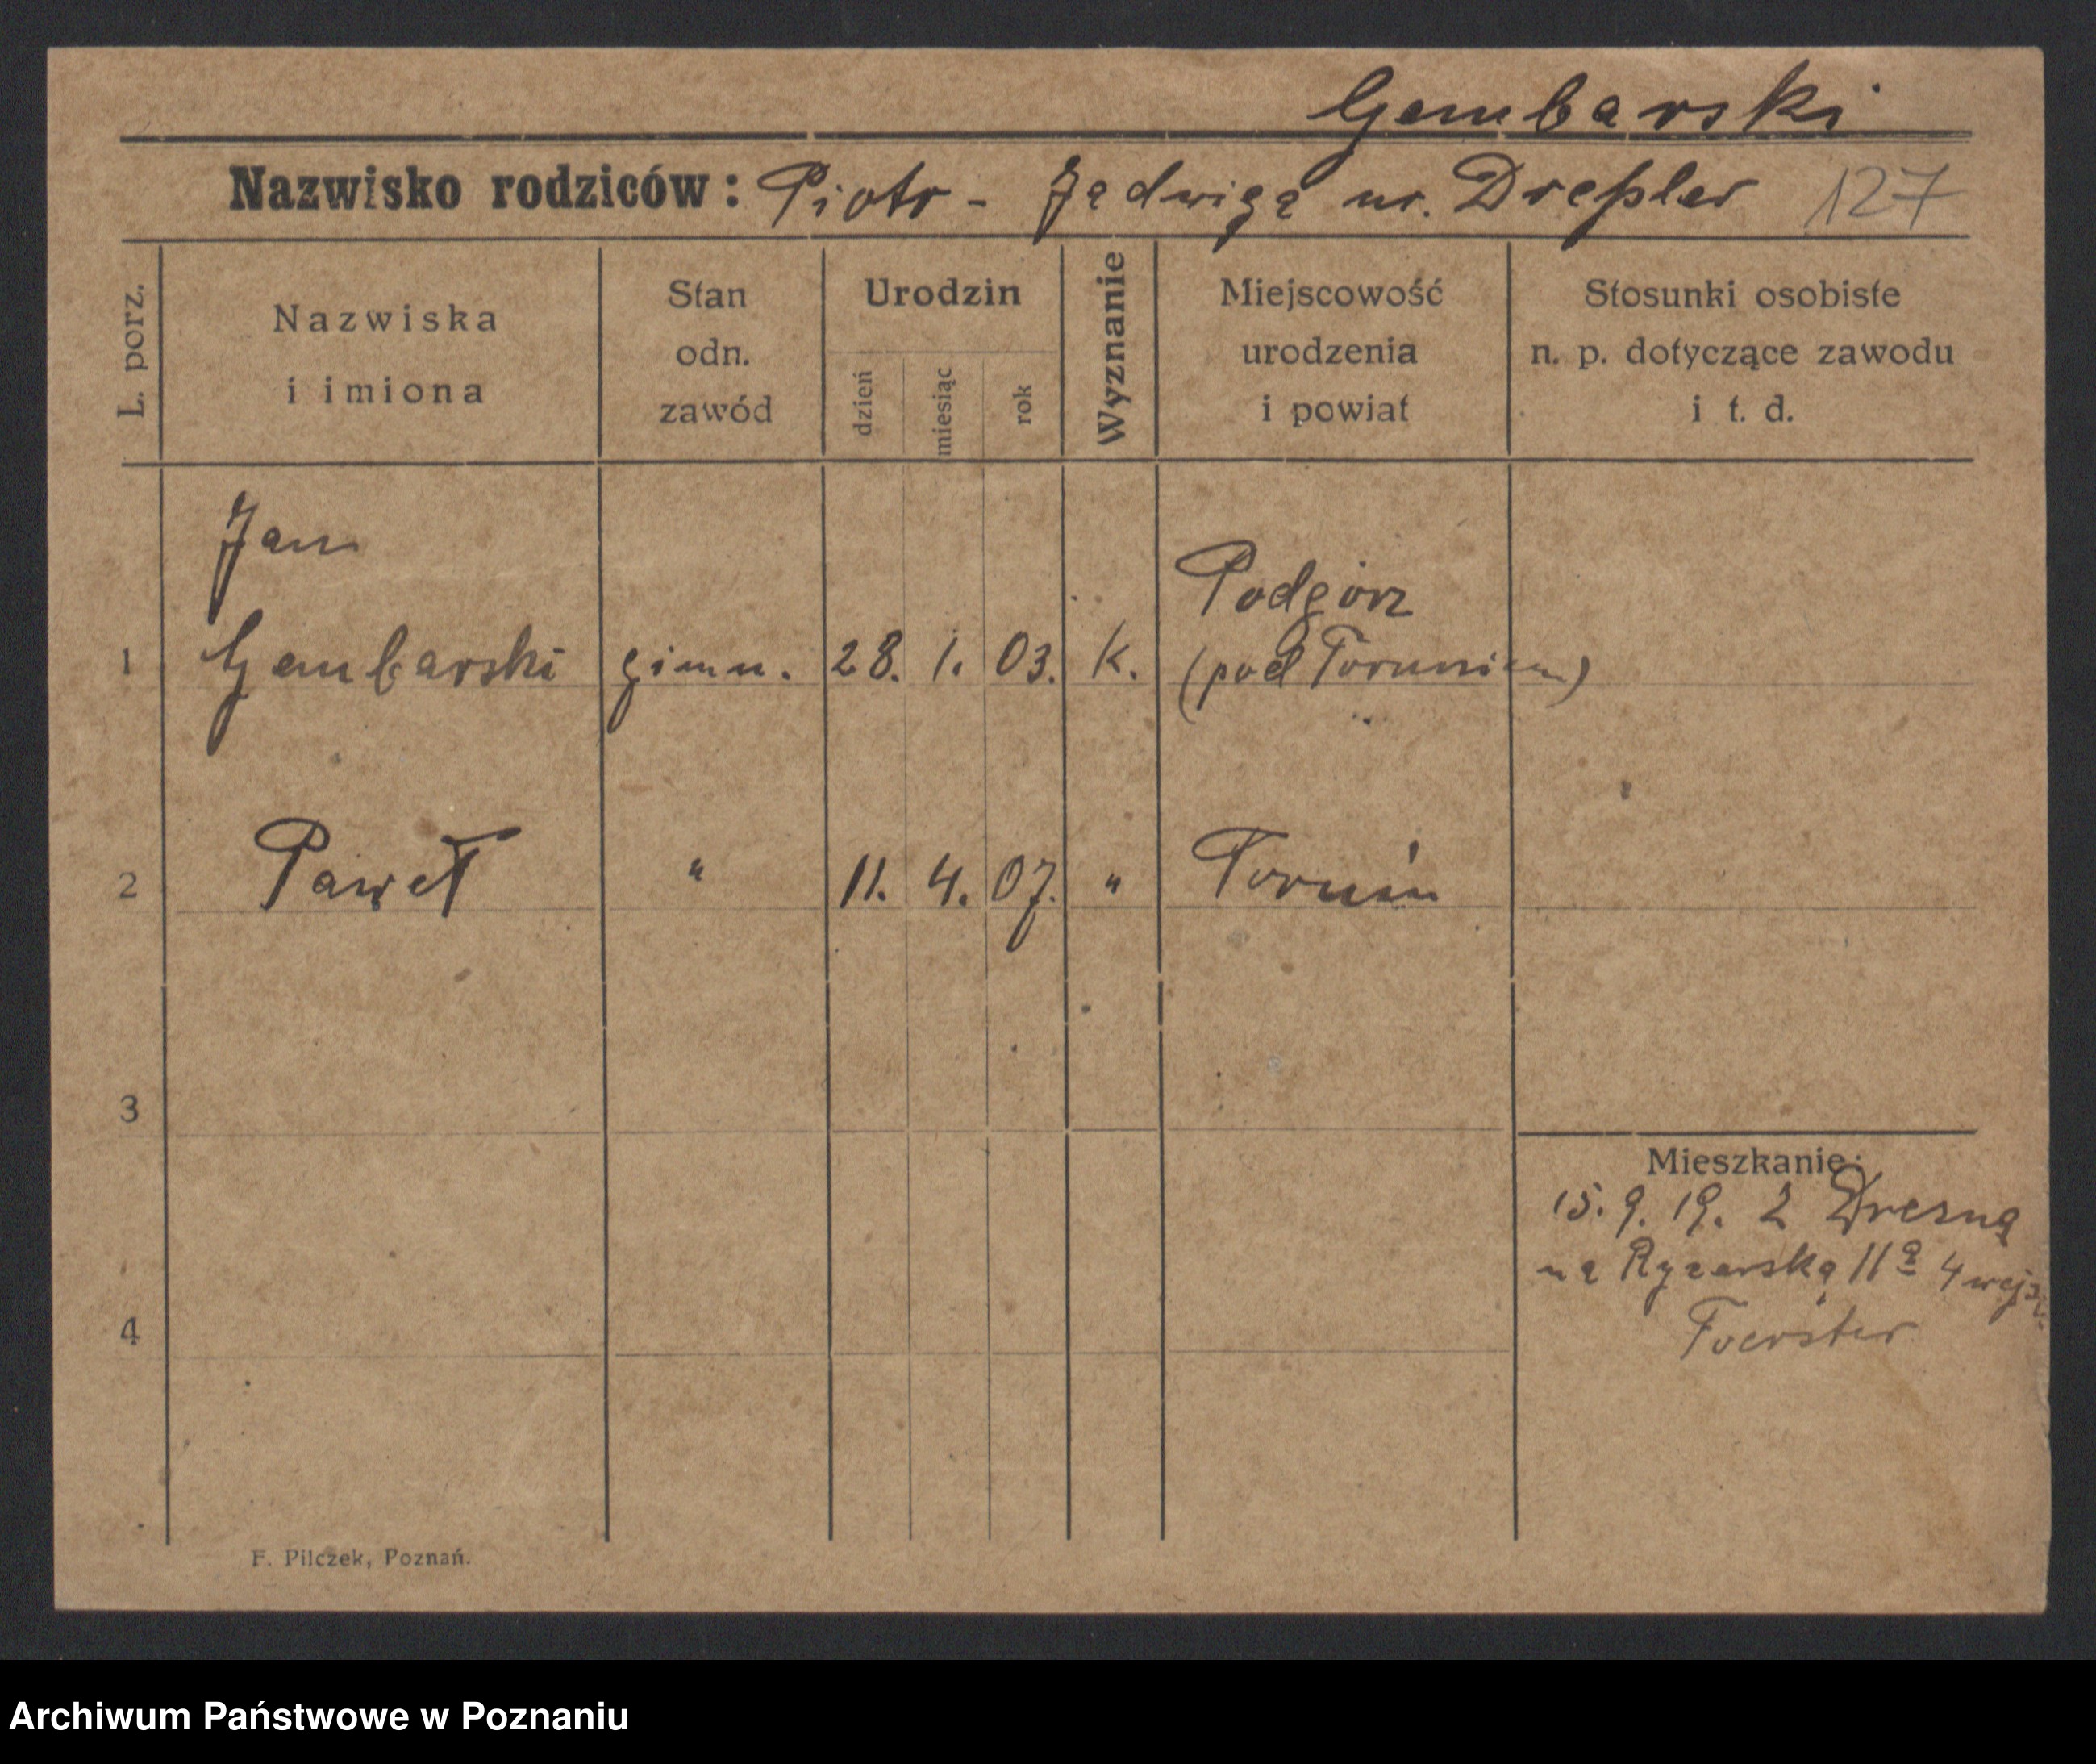 Gembarski
Nazwisko rodziców: Piotr - Jadwiga ur. Dreßler 127
L. porz.
Nazwiska i imiona
Stan odn. zawód
Urodzin
dzień
miesiąc
rok
Wyznanie
Miejscowość urodzenia i powiat
Stosunki osobiste n. p. dotyczące zawodu i t. d.
Jan
Podgórz
1 Gembarski gimn. 28. 1. 03. K. (pod Toruniem)
2 Paweł " 11. 4. 07. " Toruń
3
Mieszkanie:
15. 9. 19. z
na Rycerską 11a 4
4 Foerster
F. Pilczek, Poznań.
Archiwum Państwowe w Poznaniu